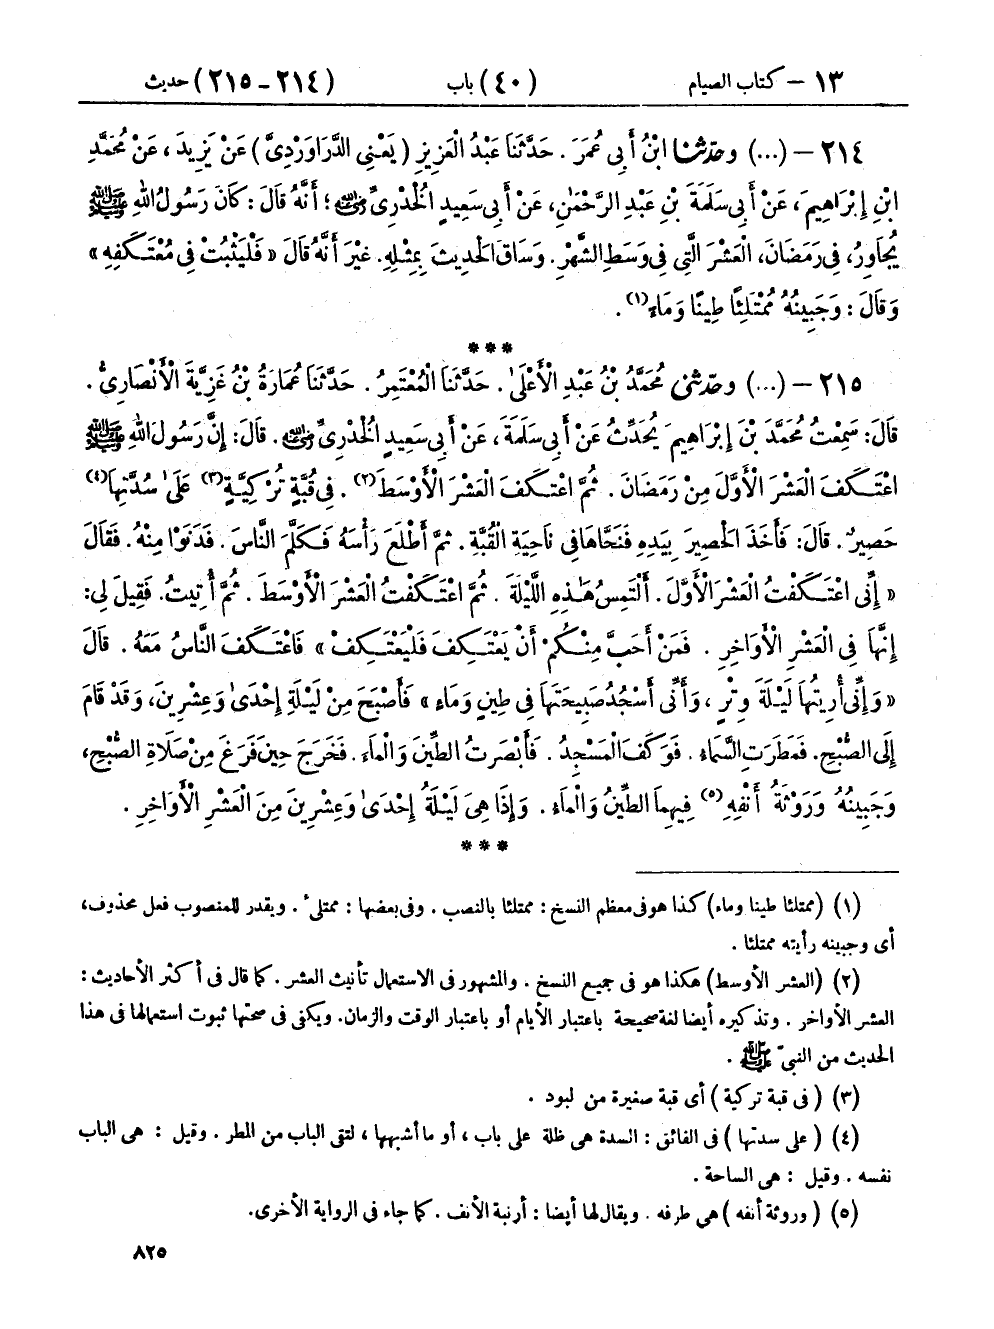 ١٣ – كتاب الصيام (٤٠) باب (٢١٤ – ٢١٥) حديث
٢١٤ – (...) وحدّثنا ابْنُ أَبِي عُمَرَ . حَدَّثَنَا عَبْدُ الْعَزِيزِ ( يَعْنِي الدَّرَاوَرْدِيَّ ) عَنْ يَزِيدَ ، عَنْ مُحَمَّدِ
ابْنِ إِبْرَاهِيمَ ، عَنْ أَبِي سَلَمَةَ بْنِ عَبْدِ الرَّحْمٰنِ، عَنْ أَبِي سَعِيدٍ الْخُدْرِيِّ رضي الله عنه ؛ أَنَّهُ قَالَ : كَانَ رَسُولُ اللهِ ﷺ
يُجَاوِرُ، فِي رَمَضَانَ، الْعَشْرَ الَّتِي فِي وَسَطِ الشَّهْرِ. وَسَاقَ الْحَدِيثَ بِمِثْلِهِ. غَيْرَ أَنَّهُ قَالَ « فَلْيَثْبُتْ فِي مُعْتَكَفِهِ »
وَقَالَ : وَجَبِينُهُ مُمْتَلِئًا طِينًا وَمَاءً (١) .
***
٢١٥ – (...) وحدّثني مُحَمَّدُ بْنُ عَبْدِ الْأَعْلَىٰ . حَدَّثَنَا الْمُعْتَمِرُ . حَدَّثَنَا عُمَارَةُ بْنُ غَزِيَّةَ الْأَنْصَارِيُّ .
قَالَ: سَمِعْتُ مُحَمَّدَ بْنَ إِبْرَاهِيمَ يُحَدِّثُ عَنْ أَبِي سَلَمَةَ، عَنْ أَبِي سَعِيدٍ الْخُدْرِيِّ رضي الله عنه . قَالَ: إِنَّ رَسُولَ اللهِ ﷺ
اعْتَكَفَ الْعَشْرَ الْأَوَّلَ مِنْ رَمَضَانَ . ثُمَّ اعْتَكَفَ الْعَشْرَ الْأَوْسَطَ (٢) . فِي قُبَّةٍ تُرْكِيَّةٍ (٣) عَلَىٰ سُدَّتِهَا (٤)
حَصِيرٌ . قَالَ: فَأَخَذَ الْحَصِيرَ بِيَدِهِ فَنَحَّاهَا فِي نَاحِيَةِ الْقُبَّةِ . ثُمَّ أَطْلَعَ رَأْسَهُ فَكَلَّمَ النَّاسَ . فَدَنَوْا مِنْهُ . فَقَالَ
« إِنِّي اعْتَكَفْتُ الْعَشْرَ الْأَوَّلَ . أَلْتَمِسُ هٰذِهِ اللَّيْلَةَ . ثُمَّ اعْتَكَفْتُ الْعَشْرَ الْأَوْسَطَ . ثُمَّ أُتِيتُ. فَقِيلَ لِي:
إِنَّهَا فِي الْعَشْرِ الْأَوَاخِرِ . فَمَنْ أَحَبَّ مِنْكُمْ أَنْ يَعْتَكِفَ فَلْيَعْتَكِفْ » فَاعْتَكَفَ النَّاسُ مَعَهُ . قَالَ
« وَإِنِّي أُرِيتُهَا لَيْلَةَ وِتْرٍ ، وَأَنِّي أَسْجُدُ صَبِيحَتَهَا فِي طِينٍ وَمَاءٍ » فَأَصْبَحَ مِنْ لَيْلَةِ إِحْدَىٰ وَعِشْرِينَ، وَقَدْ قَامَ
إِلَى الصُّبْحِ. فَمَطَرَتِ السَّمَاءُ . فَوَكَفَ الْمَسْجِدُ . فَأَبْصَرْتُ الطِّينَ وَالْمَاءَ . فَخَرَجَ حِينَ فَرَغَ مِنْ صَلَاةِ الصُّبْحِ،
وَجَبِينُهُ وَرَوْثَةُ أَنْفِهِ (٥) فِيهِمَا الطِّينُ وَالْمَاءُ . وَإِذَا هِيَ لَيْلَةُ إِحْدَىٰ وَعِشْرِينَ مِنَ الْعَشْرِ الْأَوَاخِرِ .
***
(١) (ممتلئا طينا وماء) كذا هو فى معظم النسخ : ممتلئا بالنصب . وفى بعضها : ممتلىء . ويقدر للمنصوب فعل محذوف،
أى وجبينه رأيته ممتلئا .
(٢) (العشر الأوسط) هكذا هو فى جميع النسخ . والمشهور فى الاستعمال تأنيث العشر . كما قال فى أكثر الأحاديث :
العشر الأواخر . وتذكيره أيضا لغة صحيحة باعتبار الأيام أو باعتبار الوقت والزمان. ويكفى فى صحتها ثبوت استعمالها فى هذا
الحديث من النبىّ ﷺ .
(٣) ( فى قبة تركية ) أى قبة صغيرة من لبود .
(٤) ( على سدتها ) فى الفائق : السدة هى ظلة على باب ، أو ما أشبهها ، لتقى الباب من المطر . وقيل : هى الباب
نفسه . وقيل : هى الساحة .
(٥) ( وروثة أنفه ) هى طرفه . ويقال لها أيضا : أرنبة الأنف . كما جاء فى الرواية الأخرى.
٨٢٥